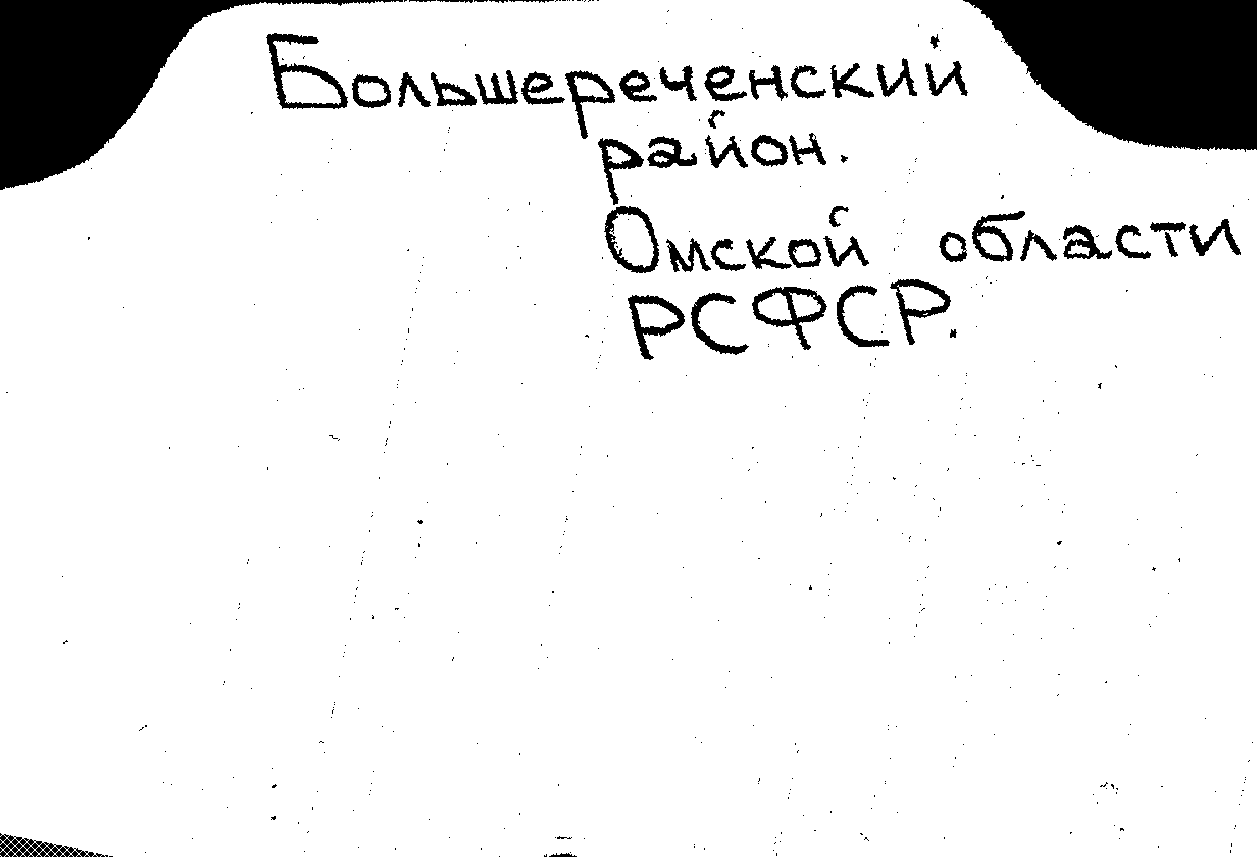 Большереченский
район.
Омской области
РСФСР.